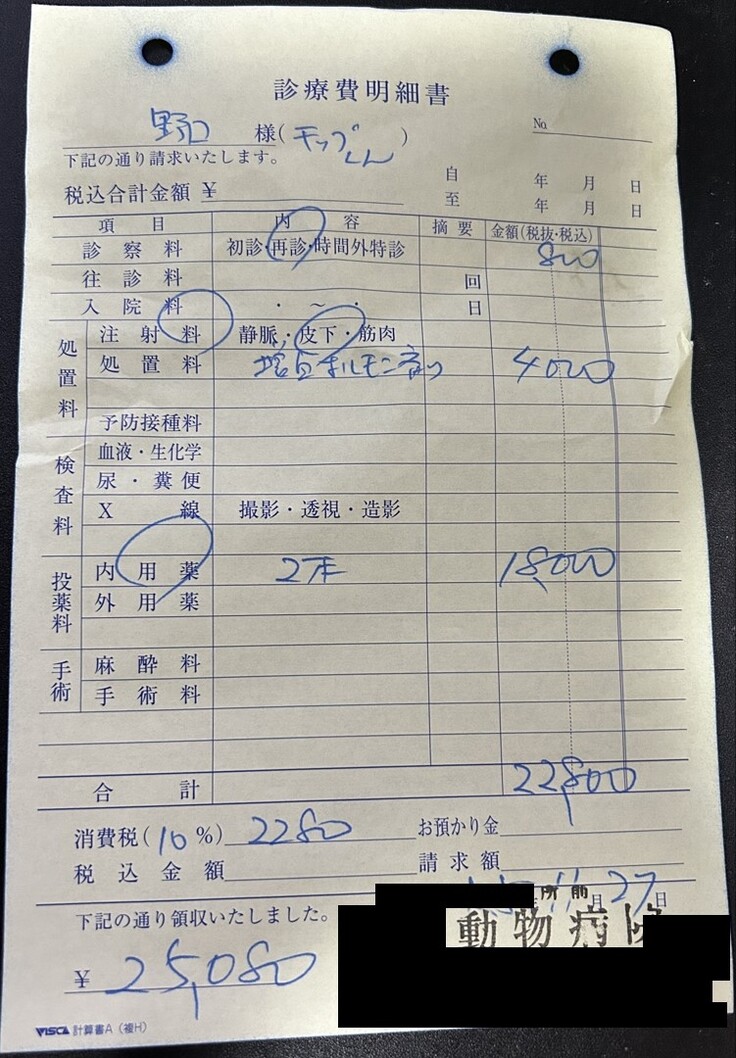 診療費明細書
野口 様(チップくん) No.
下記の通り請求いたします。
税込合計金額 ¥ 自 年 月 日
至 年 月 日
項目 内容 摘要 金額(税抜・税込)
診察料 初診・再診・時間外特診 800
往診料 回
入院料 ・ ～ ・ 日
処置料
注射料 静脈・皮下・筋肉
処置料 ホルモン剤 4000
予防接種料
検査料
血液・生化学
尿・糞便
X線 撮影・透視・造影
投薬料
内用薬 2本 18,000
外用薬
手術
麻酔料
手術料
合計 22,800
消費税(10%) 2280 お預かり金
税込金額 請求額
11月27日
下記の通り領収いたしました。
所前
動物病院
¥ 25,080
VISCA 計算書A(複H)